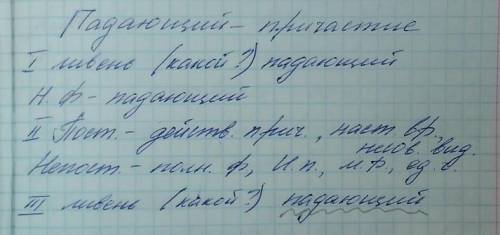 Падающий - причастие
I ливень (какой?) падающий
Н.ф - падающий
II Пост. - действ. прич., наст вр.,
несов. вид.
Непост. - полн. ф., И.п., м.р., ед. ч.
III ливень (какой?) падающий